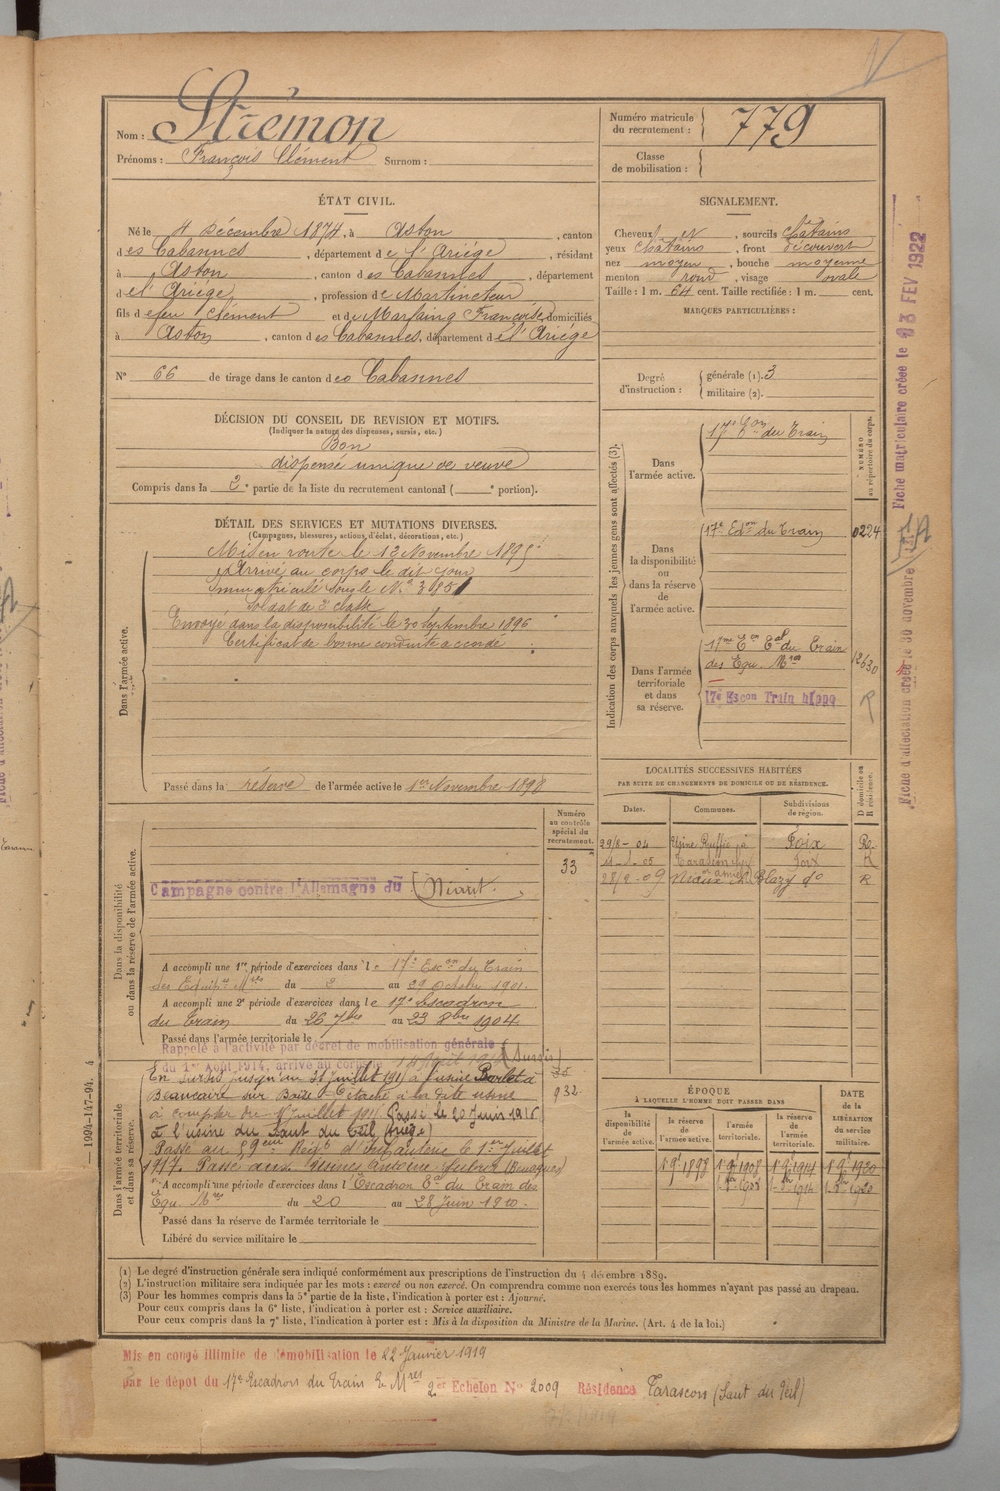 Nom : Strémon
Prénoms : François Clément Surnom :
Numéro matricule du recrutement : 779
Classe de mobilisation :
ÉTAT CIVIL.
Né le 4 Décembre 1874, à Aston, canton
des Cabannes, département de l'Ariège, résidant
à Aston, canton des Cabannes, département
de l'Ariège, profession de
fils de feu Clément et de Marfaing Françoise, domiciliés
à Aston, canton des Cabannes, département de l'Ariège
N° 66 de tirage dans le canton des Cabannes
SIGNALEMENT.
Cheveux et, sourcils chatains
yeux chatains, front découvert
nez moyen, bouche moyenne
menton rond, visage ovale
Taille : 1 m. 64 cent. Taille rectifiée : 1 m. cent.
MARQUES PARTICULIÈRES :
Degré d'instruction : générale (1). 3
militaire (2).
DÉCISION DU CONSEIL DE REVISION ET MOTIFS.
(Indiquer la nature des dispenses, sursis, etc.)
Bon
dispensé unique de veuve
Compris dans la 2e partie de la liste du recrutement cantonal ( e portion).
DÉTAIL DES SERVICES ET MUTATIONS DIVERSES.
(Campagnes, blessures, actions d'éclat, décorations, etc.)
Dans l'armée active.
Mis en route le 13 Novembre 1895
Arrivé au corps le dit jour
Immatriculé sous le N° 3851
Soldat de 2e classe
Envoyé dans la disponibilité le 30 Septembre 1896
Certificat de bonne conduite accordé
Passé dans la réserve de l'armée active le 1er Novembre 1898
Indication des corps auxquels les jeunes gens sont affectés (3).
NUMÉRO au répertoire du corps.
Dans l'armée active.
17e Eon du Train
Dans la disponibilité ou dans la réserve de l'armée active.
17e Eon du Train 0224
Dans l'armée territoriale et dans sa réserve.
17me Eon Eal du Train
des Equ. Mres 12630
17e Escon Train hippq
LOCALITÉS SUCCESSIVES HABITÉES
PAR SUITE DE CHANGEMENTS DE DOMICILE OU DE RÉSIDENCE.
Dates. Communes. Subdivisions de région. D domicile ou R résidence.
29/8-04 Usine Ruffié à Foix R
-05 Tarascon Foix R
28/2-09 Niaux do R
Dans la disponibilité ou dans la réserve de l'armée active.
Numéro au contrôle spécial du recrutement.
33
Campagne contre l'Allemagne du Néant.
A accompli une 1re période d'exercices dans le 17e Escon du Train
des Equip. Mres du 2 au 29 Octobre 1901
A accompli une 2e période d'exercices dans le 17e Escadron
du Train du 26 7bre au 23 8bre 1904
Passé dans l'armée territoriale le
Rappelé à l'activité par décret de mobilisation générale (Sursis)
du 1er Août 1914, arrivé au corps le
Dans l'armée territoriale et dans sa réserve.
932
En sursis jusqu'au 31 Juillet à l'usine
Beaucaire sur Baïse Détaché à la dite usine
à compter du Juillet Passé le 20 Juin 1916
à l'usine du Saut du Teil (Ariège)
Passé au
1917. Passé aux
A accompli une période d'exercices dans l'Escadron Eal du Train des
Equ. Mres du 20 au 28 Juin 1910.
Passé dans la réserve de l'armée territoriale le
Libéré du service militaire le
ÉPOQUE
A LAQUELLE L'HOMME DOIT PASSER DANS
la disponibilité de l'armée active. la réserve de l'armée active. l'armée territoriale. la réserve de l'armée territoriale. DATE de la LIBÉRATION du service militaire.
1er 9bre 1898 1er 9bre 1908 1er 9bre 1914 1er 9bre 1920
(1) Le degré d'instruction générale sera indiqué conformément aux prescriptions de l'instruction du 4 décembre 1889.
(2) L'instruction militaire sera indiquée par les mots : exercé ou non exercé. On comprendra comme non exercés tous les hommes n'ayant pas passé au drapeau.
(3) Pour les hommes compris dans la 5e partie de la liste, l'indication à porter est : Ajourné.
Pour ceux compris dans la 6e liste, l'indication à porter est : Service auxiliaire.
Pour ceux compris dans la 7e liste, l'indication à porter est : Mis à la disposition du Ministre de la Marine. (Art. 4 de la loi.)
Mis en congé illimité de démobilisation le 22 Janvier 1919
par le dépôt du 17e Escadron du Train E. Mres 2er Echelon No 2009 Résidence Tarascon (Saut du Teil)
— 1994-147-94. 4
Fiche matriculaire créée le 13 FEV 1922
Fiche d'affectation créée le 30 novembre